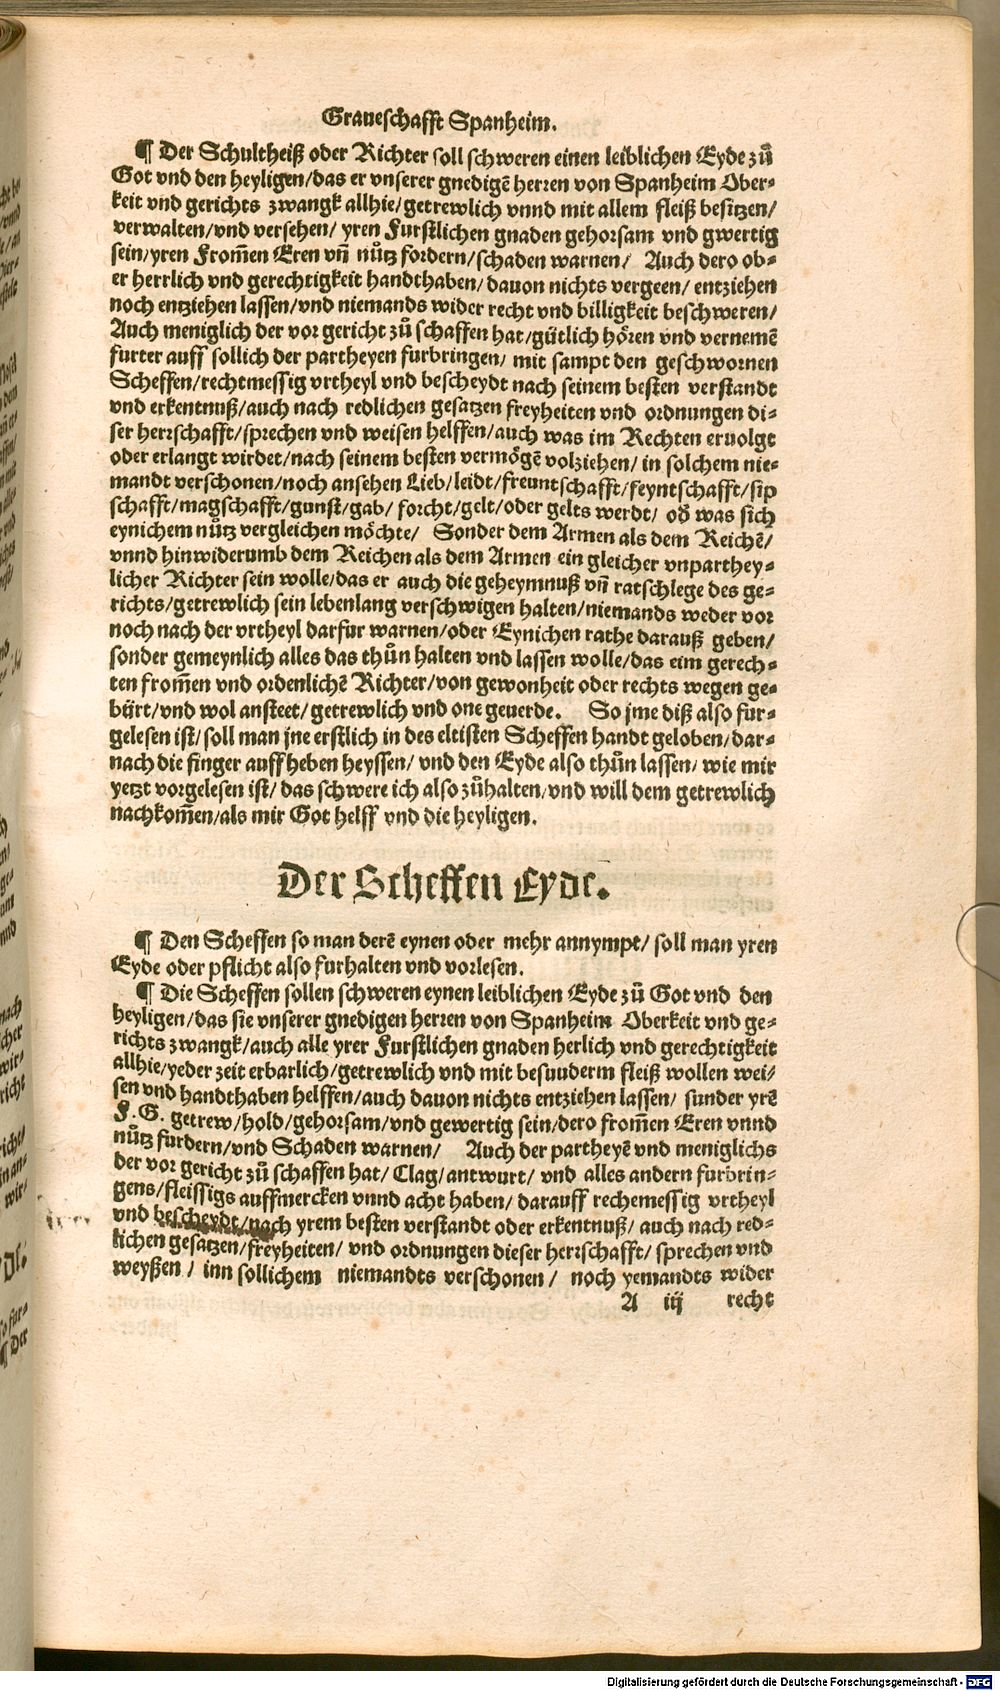 Graueschafft Spanheim.
¶ Der Schultheiß oder Richter soll schweren einen leiblichen Eyde zů
Got vnd den heyligen/das er vnserer gnedigẽ herren von Spanheim Ober-
keit vnd gerichts zwangk allhie/getrewlich vnnd mit allem fleiß besitzen/
verwalten/vnd versehen/ yren Furstlichen gnaden gehorsam vnd gwertig
sein/yren From̃en Eren vñ nůtz fordern/schaden warnen/ Auch dero ob-
er herrlich vnd gerechtigkeit handthaben/dauon nichts vergeen/ entziehen
noch entziehen lassen/vnd niemands wider recht vnd billigkeit beschweren/
Auch meniglich der vor gericht zů schaffen hat/gütlich hören vnd vernemẽ
furter auff sollich der partheyen furbringen/ mit sampt den geschwornen
Scheffen/rechtmessig vrtheyl vnd bescheydt nach seinem besten verstandt
vnd erkentnuß/auch nach redlichen gesatzen freyheiten vnd ordnungen di-
ser herrschafft/sprechen vnd weisen helffen/auch was im Rechten eruolgt
oder erlangt wirdet/nach seinem besten vermögẽ volziehen/ in solchem nie-
mandt verschonen/noch ansehen Lieb/leidt/freuntschafft/feyntschafft/sip
schafft/magschafft/gunst/gab/ forcht/gelt/oder gelts werdt/ oď was sich
eynichem nůtz vergleichen möchte/ Sonder dem Armen als dem Reichẽ/
vnnd hinwiderumb dem Reichen als dem Armen ein gleicher vnparthey-
licher Richter sein wolle/das er auch die geheymnuß vñ ratschlege des ge-
richts/getrewlich sein lebenlang verschwigen halten/niemands weder vor
noch nach der vrtheyl darfur warnen/oder Eynichen rathe darauß geben/
sonder gemeynlich alles das thůn halten vnd lassen wolle/das eim gerech-
ten from̃en vnd ordenlichẽ Richter/von gewonheit oder rechts wegen ge-
bürt/vnd wol ansteet/getrewlich vnd one geuerde. So jme diß also fur-
gelesen ist/soll man jne erstlich in des eltisten Scheffen handt geloben/dar-
nach die finger auffheben heyssen/ vnd den Eyde also thůn lassen/ wie mir
yetzt vorgelesen ist/ das schwere ich also zůhalten/vnd will dem getrewlich
nachkom̃en/als mir Got helff vnd die heyligen.
Der Scheffen Eyde.
¶ Den Scheffen so man derẽ eynen oder mehr annympt/ soll man yren
Eyde oder pflicht also furhalten vnd vorlesen.
¶ Die Scheffen sollen schweren eynen leiblichen Eyde zů Got vnd den
heyligen/das sie vnserer gnedigen herren von Spanheim Oberkeit vnd ge-
richts zwangk/auch alle yrer Furstlichen gnaden herlich vnd gerechtigkeit
allhie/yeder zeit erbarlich/getrewlich vnd mit besuuderm fleiß wollen wei/
sen vnd handthaben helffen/auch dauon nichts entziehen lassen/ sunder yrẽ
F.G. getrew/hold/gehorsam/vnd gewertig sein/dero from̃en Eren vnnd
nůtz furdern/vnd Schaden warnen/ Auch der partheyẽ vnd meniglichs
der vor gericht zů schaffen hat/ Clag/antwurt/ vnd alles andern furbrin-
gens/fleissigs auffmercken vnnd acht haben/ darauff rechemessig vrtheyl
vnd bescheydt/nach yrem besten verstandt oder erkentnuß/ auch nach red-
lichen gesatzen/freyheiten/ vnd ordnungen dieser herrschafft/ sprechen vnd
weyßen/ inn sollichem niemandts verschonen/ noch yemandts wider
A iij recht
Digitalisierung gefördert durch die Deutsche Forschungsgemeinschaft - DFG